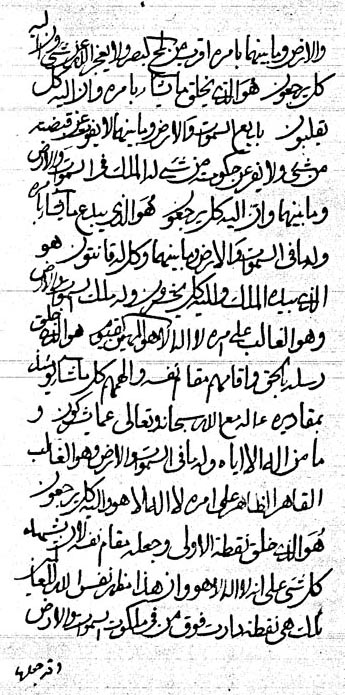 والارض وما بينهما بامره اقرب من لمح البصر ولا يعجزه من شئ وان اليه
كل يرجعون هو الذي يخلق ما يشاء بامره وان اليه كل
يقلبون بديع السموات والارض وما بينهما لا يفوته عن قبضته
من شئ ولا يفر عن حكومته من شئ له الملك في السموات والارض
وما بينهما وان اليه كل يرجعون هو الذي يبدع ما يشاء بامره
وله ما في السموات والارض وما بينهما وكل له قانتون هو
الذي بيده الملك وله ملك السموات والارض
وهو الغالب على امره لا اله الا هو المهيمن القيوم هو الذي خلق
رسله بالحق واقامهم مقام نفسه والهمهم كل ما شاء
بمقاديره ءاله مع الله سبحانه وتعالى عما يشركون و
ما من اله الا اياه وله ما في السموات والارض وهو الغالب
القاهر الظاهر على امره لا اله الا هو واليه كل يرجعون
هو الذي خلق نقطة الاولى وجعله مقام نفسه لان يشهد
كل شئ على انه لا اله الا هو وان هذا مظهر نفس الله
تلك هي نقطة دارت فوق من في ملكوت السموات والارض